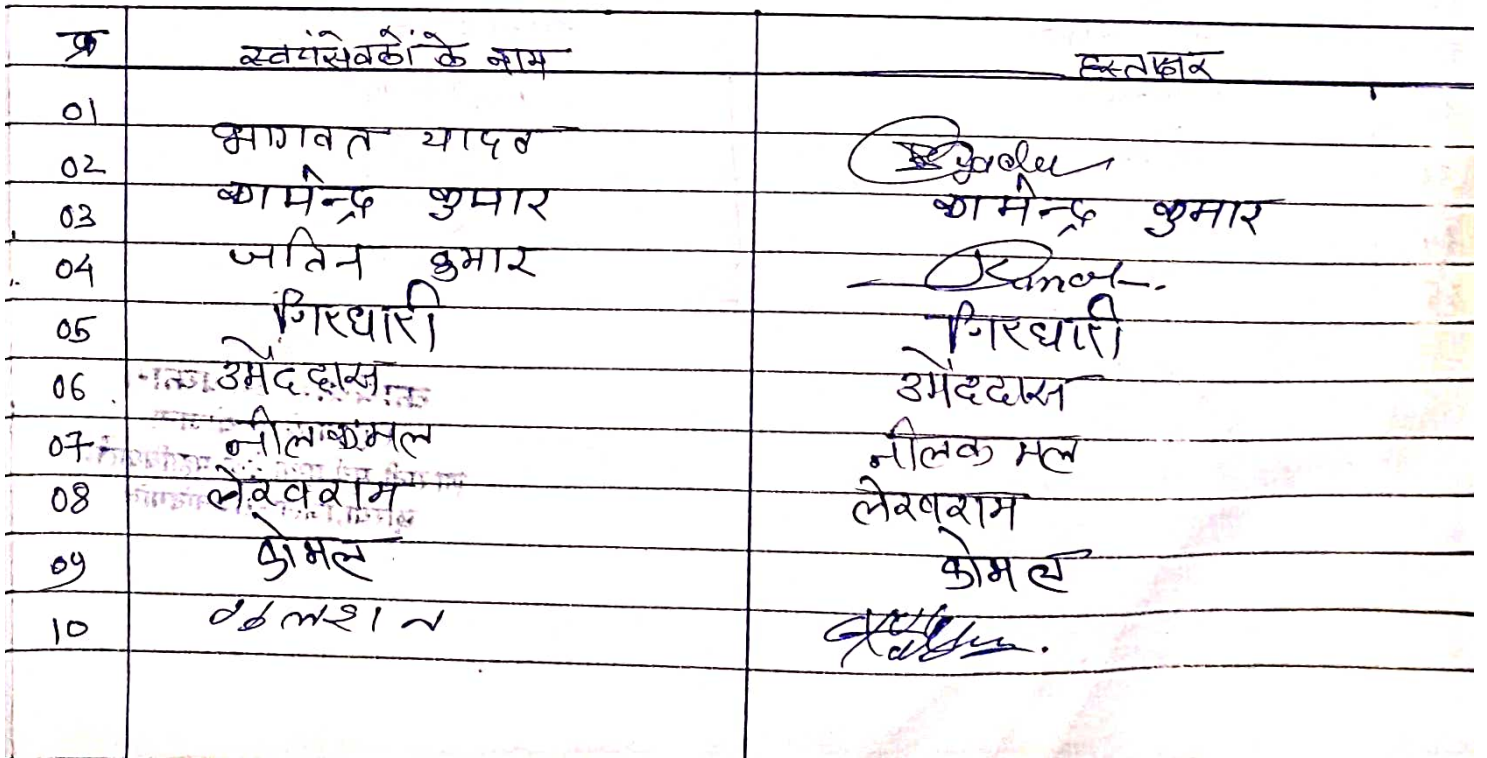 क्र स्वयंसेवकों के नाम हस्ताक्षर
01
भागवत यादव
02 Byadu
कामेन्द्र कुमार कामेन्द्र कुमार
03
जतिन कुमार
04
गिरधारी गिरधारी
05
उमेंददास उमेंददास
06
नीलकमल नीलकमल
07
लेखराम लेखराम
08
कोमल कोमल
09
10